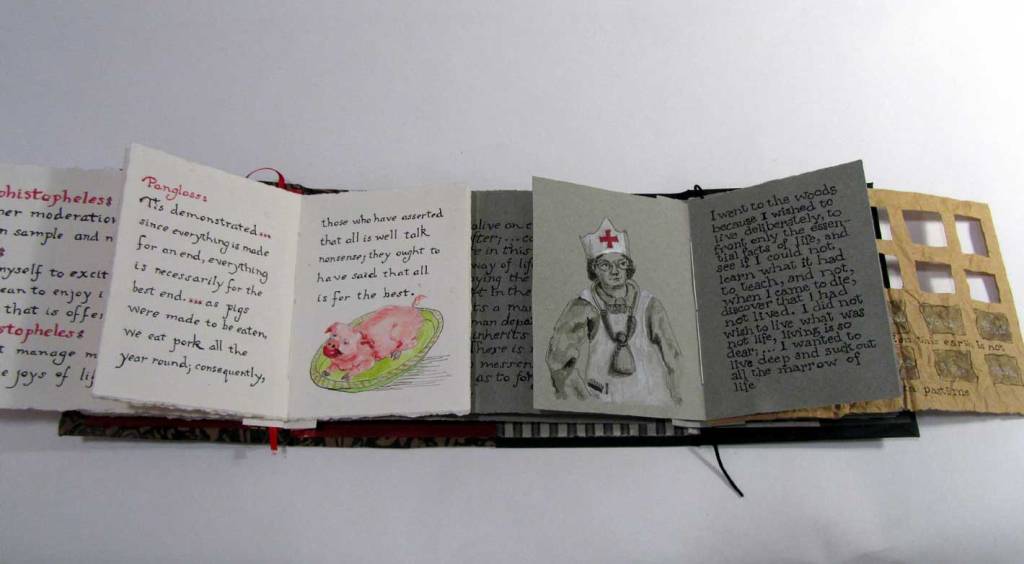 phistopheles:
er moderation
n sample and n
s:
nyself to excit
ean to enjoy i
that is offe
ostopheles:
t manage m
e joys of lif
Pangloss:
Tis demonstrated...
since everything is made
for an end, everything
is necessarily for the
best end.... as pigs
were made to be eaten,
we eat pork all the
year round; consequently,
those who have asserted
that all is well talk
nonsense; they ought to
have said that all
is for the best.
alive on e
fter;...co
e in this
way of lif
ying the
t in the
ts a man
man depa
inherits
There is n
as to for
I went to the woods
because I wished to
live deliberately, to
front only the essen-
tial facts of life, and
see if I could not,
learn what it had
to teach, and not,
when I came to die,
discover that I had
not lived. I did not
wish to live what was
not life, living is so
dear;..., I wanted to
live deep and suck out
all the marrow of
life
this earth is not
a pasterns